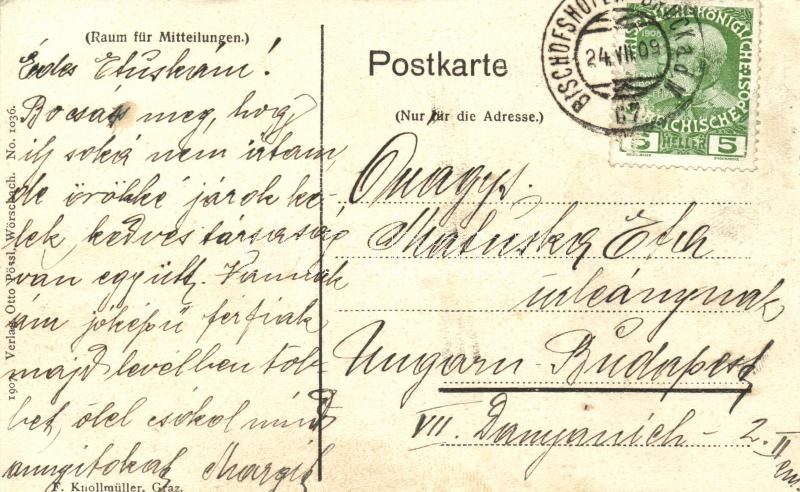 (Raum für Mitteilungen.)
Édes Etuskám!
Bocsás meg, hogy
ily soká nem írtam,
de örökké járok ke-
lek, kedves társaság
van együtt. Vannak
ám jóképű férfiak
majd levélben töb-
bet, ölel csókol mind
annyitokat Margit
F. Knollmüller, Graz.
1907. Verlag Otto Pössl, Wörschach. No. 1036.
Postkarte
(Nur für die Adresse.)
BISCHOFSHOFEN
24.VII.09
5 HELLER 5
Onagys.
Matuska Eta
urleánynak
Ungarn-Budapest
VII. Damjanich-2. II
em.